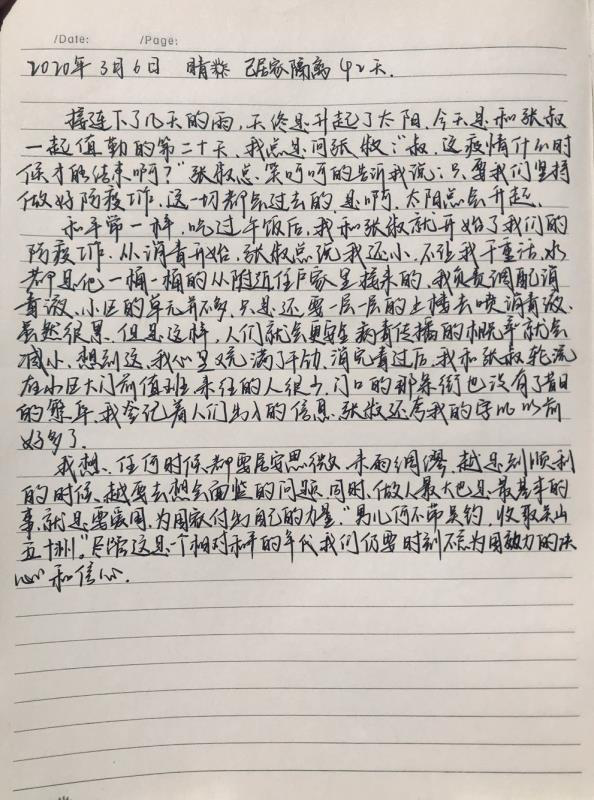 /Date: /Page:
2020年3月6日 晴 已居家隔离42天.
接连下了几天的雨,天终是升起了太阳.今天是和张叔
一起值勤的第二十天.我总是问张叔:"叔,这疫情什么时
候才能结束啊?"张叔总笑呵呵的告诉我说:只要我们坚持
做好防疫工作,这一切都会过去的.是啊,太阳总会升起.
和平常一样,吃过午饭后,我和张叔就开始了我们的
防疫工作.从消毒开始,张叔总说我还小,不让我干重活,水
都是他一桶一桶的从附近住户家里接来的,我负责调配消
毒液.小区的单元并不多,只是还要一层一层的上楼去喷消毒液.
虽然很累,但是这样,人们就会更安全病毒传播的概率就会
减小.想到这,我心里又充满了干劲.消完毒过后,我和张叔轮流
在小区大门前值班.来往的人很少,门口的那条街也没有了昔日
的繁华.我登记着人们出入的信息.张叔还夸我的字比以前
好多了.
我想,任何时候都要居安思微,未雨绸缪,越是到顺利
的时候,越要去想会面临的问题.同时,做人最大也是最基本的
事,就是要爱国,为国家付出自己的力量."男儿何不带吴钩,收取关山
五十州."尽管这是一个相对和平的年代我们仍要时刻不忘为国效力的决
心和信心.